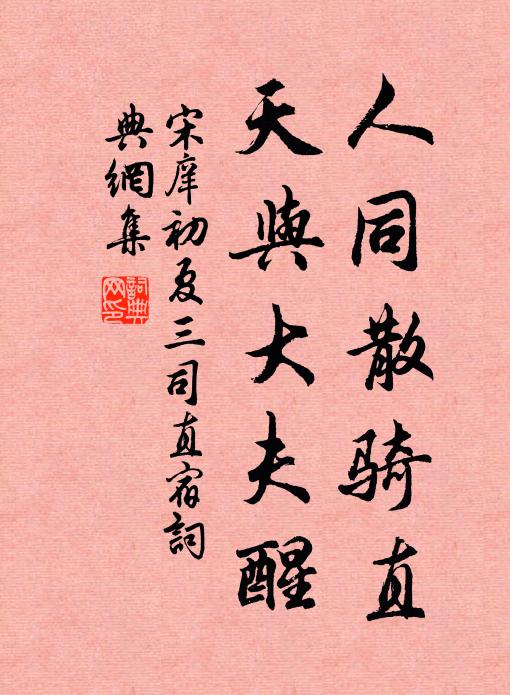 人同散骑直
天與大夫醒
宋庠初夏三司直宿詞
典網集
詞典网印